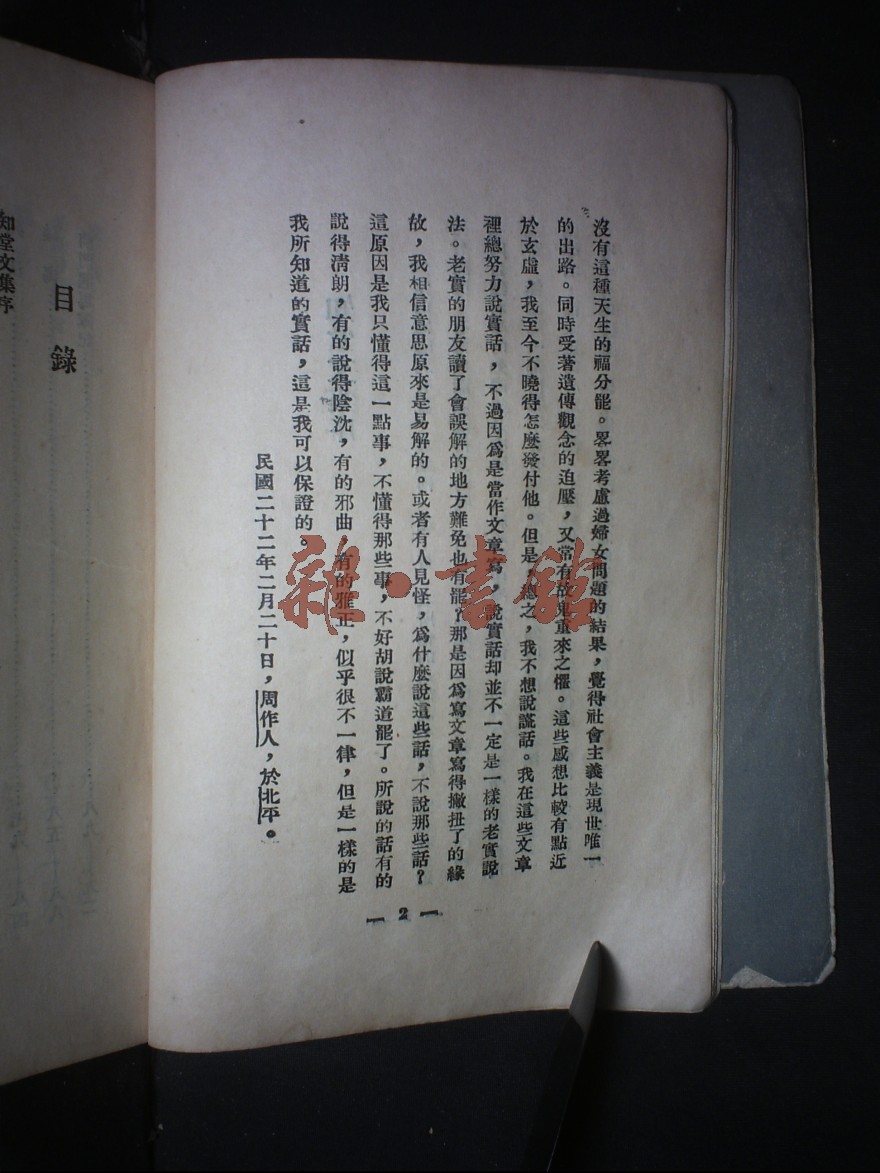 沒有這種天生的福分罷。畧畧考慮過婦女問題的結果，覺得社會主義是現世唯一
的出路。同時受著遺傳觀念的迫壓，又常有故鬼重來之懼。這些感想比較有點近
於玄虛，我至今不曉得怎麼發付他。但是，總之，我不想說謊話。我在這些文章
裡總努力說實話，不過因爲是當作文章寫，說實話却並不一定是一樣的老實說
法。老實的朋友讀了會誤解的地方難免也有罷？那是因爲寫文章寫得撇扭了的緣
故，我相信意思原來是易解的。或者有人見怪，爲什麼說這些話，不說那些話？
這原因是我只懂得這一點事，不懂得那些事，不好胡說霸道罷了。所說的話有的
說得淸朗，有的說得陰沈，有的邪曲，有的雅正，似乎很不一律，但是一樣的是
我所知道的實話，這是我可以保證的。
民國二十二年二月二十日，周作人，於北平。
2
目錄
知堂文集序
雜·書館